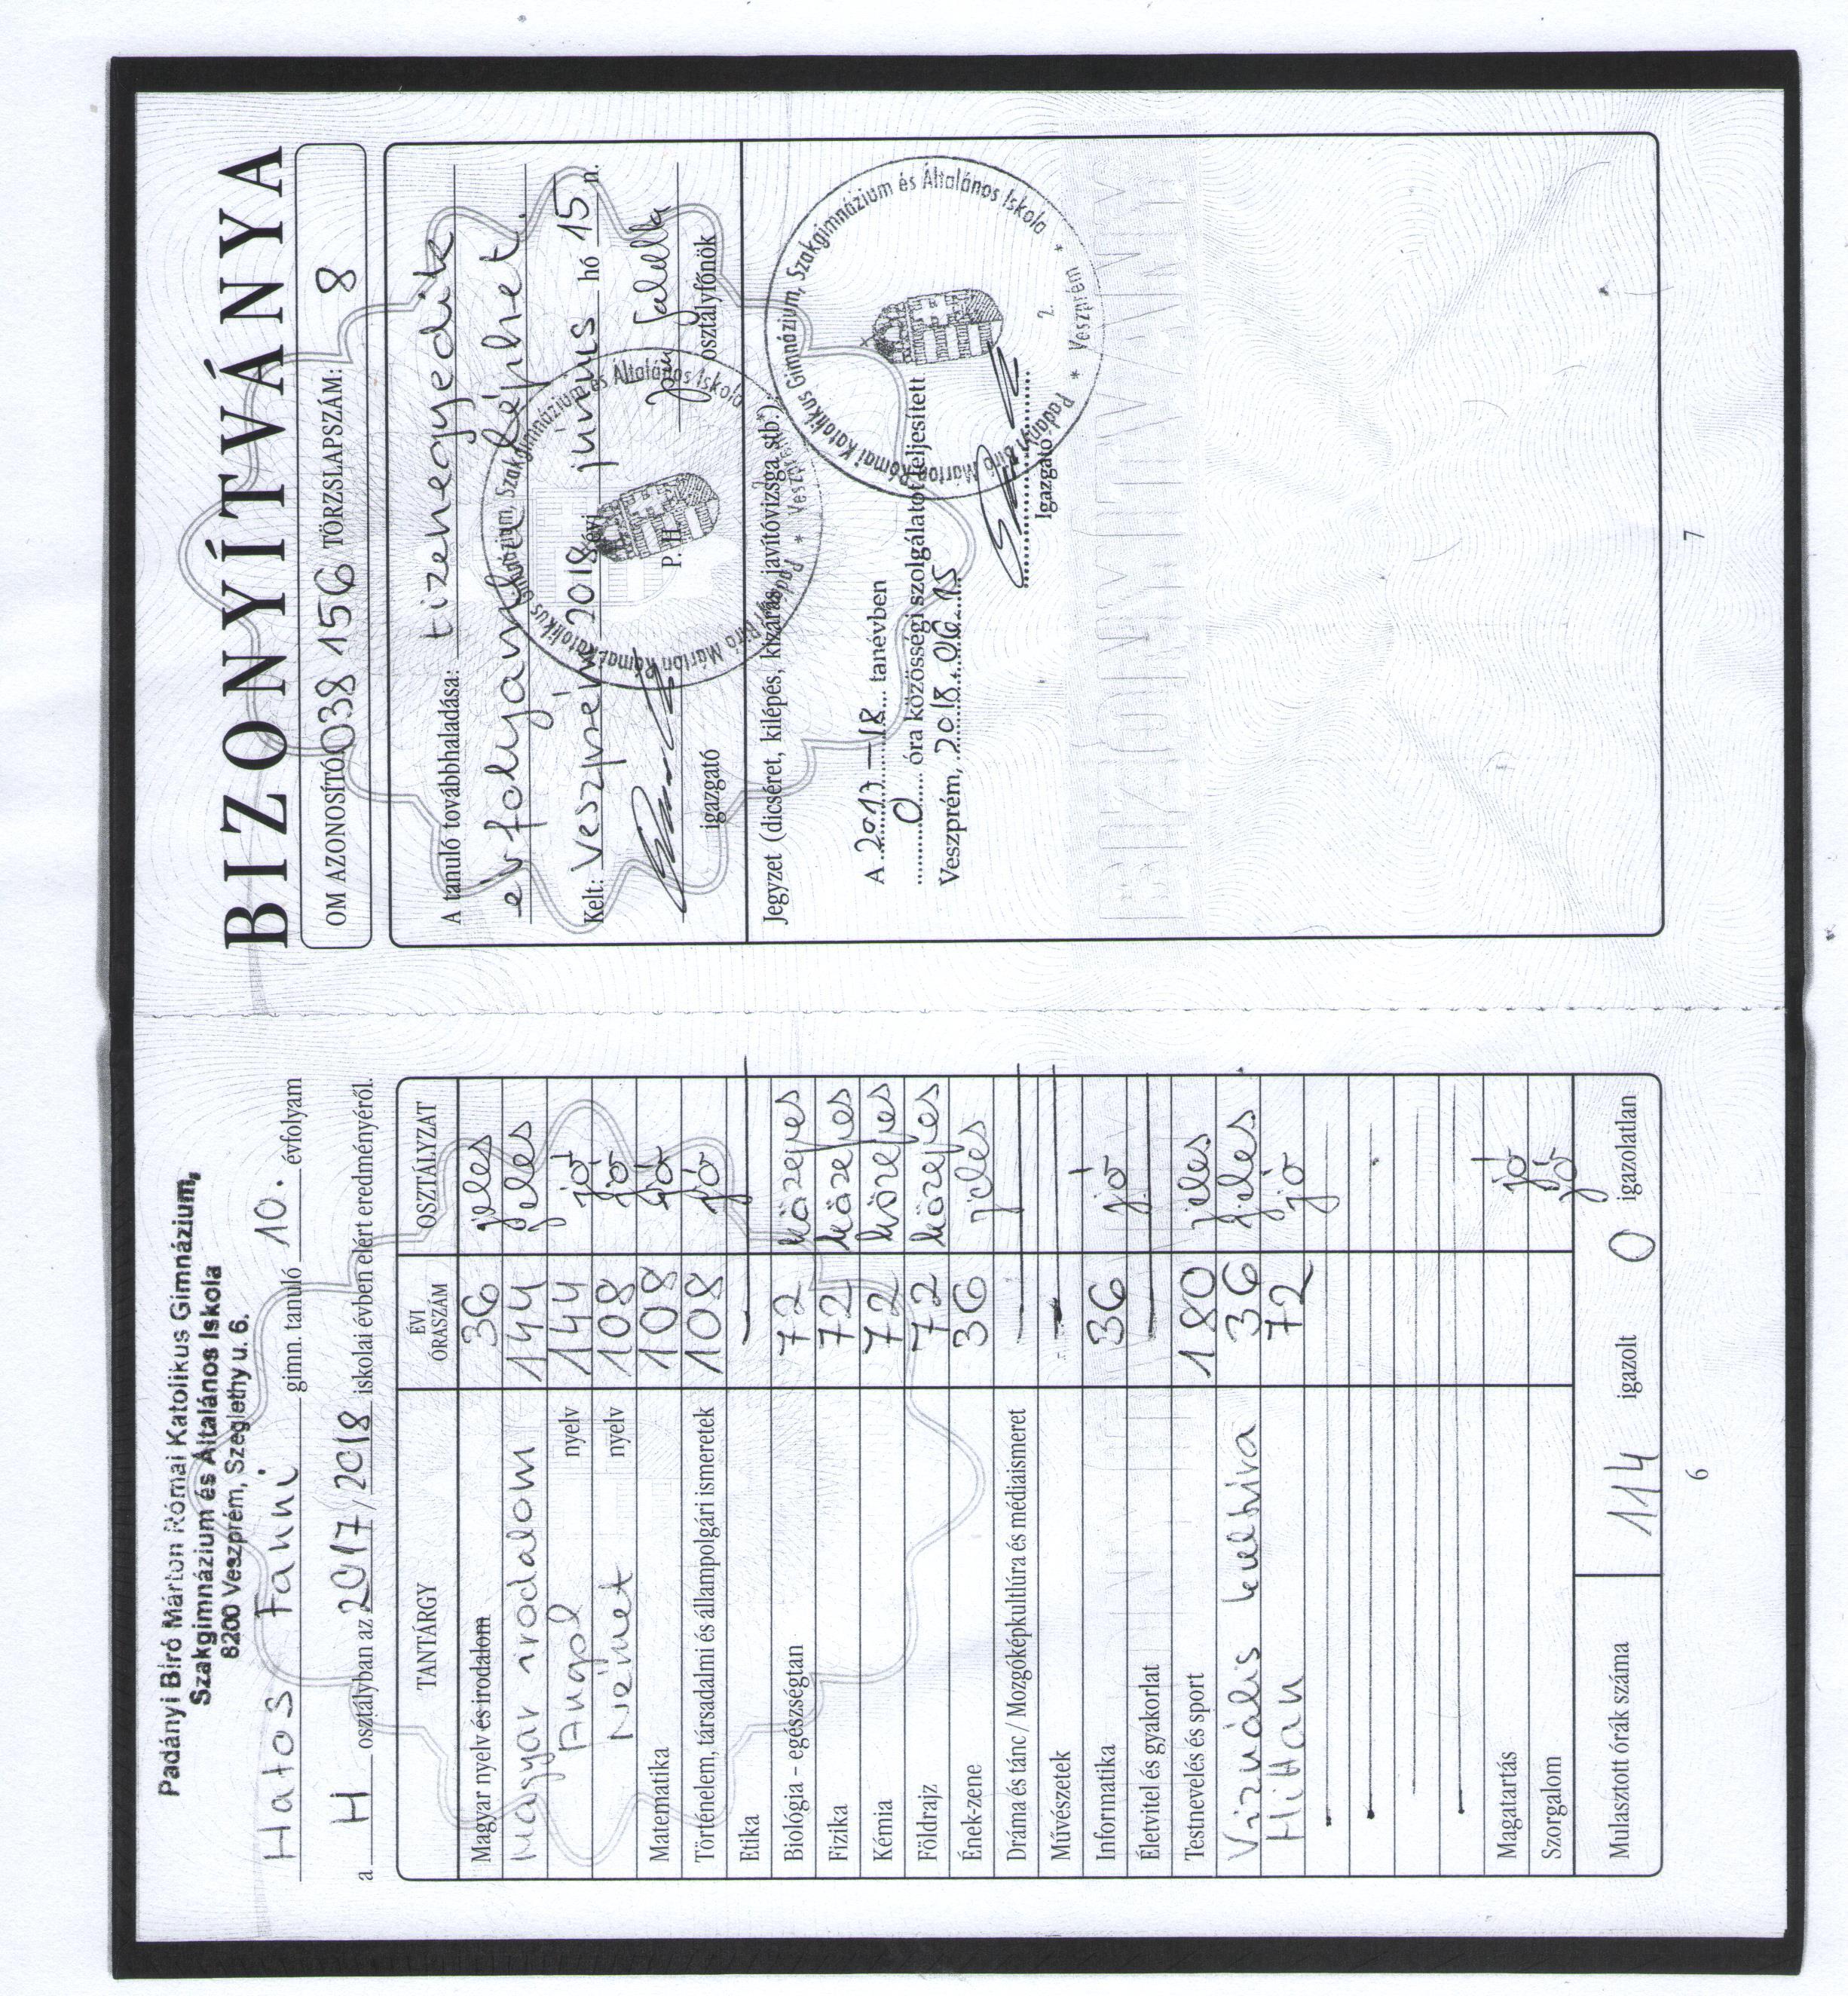 Padányi Biró Márton Római Katolikus Gimnázium,
Szakgimnázium és Általános Iskola
8200 Veszprém, Szeglethy u. 6.
Hatos Fanni gimn. tanuló 10. évfolyam
a H osztályban az 2017/2018 iskolai évben elért eredményéről.
TANTÁRGY ÉVI ÓRASZÁM OSZTÁLYZAT
Magyar nyelv és irodalom 36 jeles
Magyar irodalom 144 jeles
Angol nyelv 144 jó
Német nyelv 108 jó
Matematika 108 jó
Történelem, társadalmi és állampolgári ismeretek 108 jó
Etika
Biológia – egészségtan 72 közepes
Fizika 72 közepes
Kémia 72 közepes
Földrajz 72 közepes
Ének-zene 36 jeles
Dráma és tánc / Mozgóképkultúra és médiaismeret
Művészetek
Informatika 36 jó
Életvitel és gyakorlat
Testnevelés és sport 180 jeles
Vizuális kultúra 36 jeles
Hittan 72 jó
Magatartás jó
Szorgalom jó
Mulasztott órák száma 114 igazolt 0 igazolatlan
6
BIZONYÍTVÁNYA
OM AZONOSÍTÓ 038 156 TÖRZSLAPSZÁM: 8
A tanuló továbbhaladása: tizenegyedik
évfolyamba léphet.
Kelt: Veszprém 2018 évi június hó 15 n.
P. H.
igazgató osztályfőnök
Padányi Biró Márton Római Katolikus Gimnázium, Szakgimnázium és Általános Iskola * Veszprém *
Jegyzet (dicséret, kilépés, kizárás, javítóvizsga stb.):
A 2017-18 tanévben
0 óra közösségi szolgálatot teljesített
Veszprém, 2018.06.15
Igazgató
Padányi Biró Márton Római Katolikus Gimnázium, Szakgimnázium és Általános Iskola * Veszprém *
2.
BIZONYÍTVÁNY
7